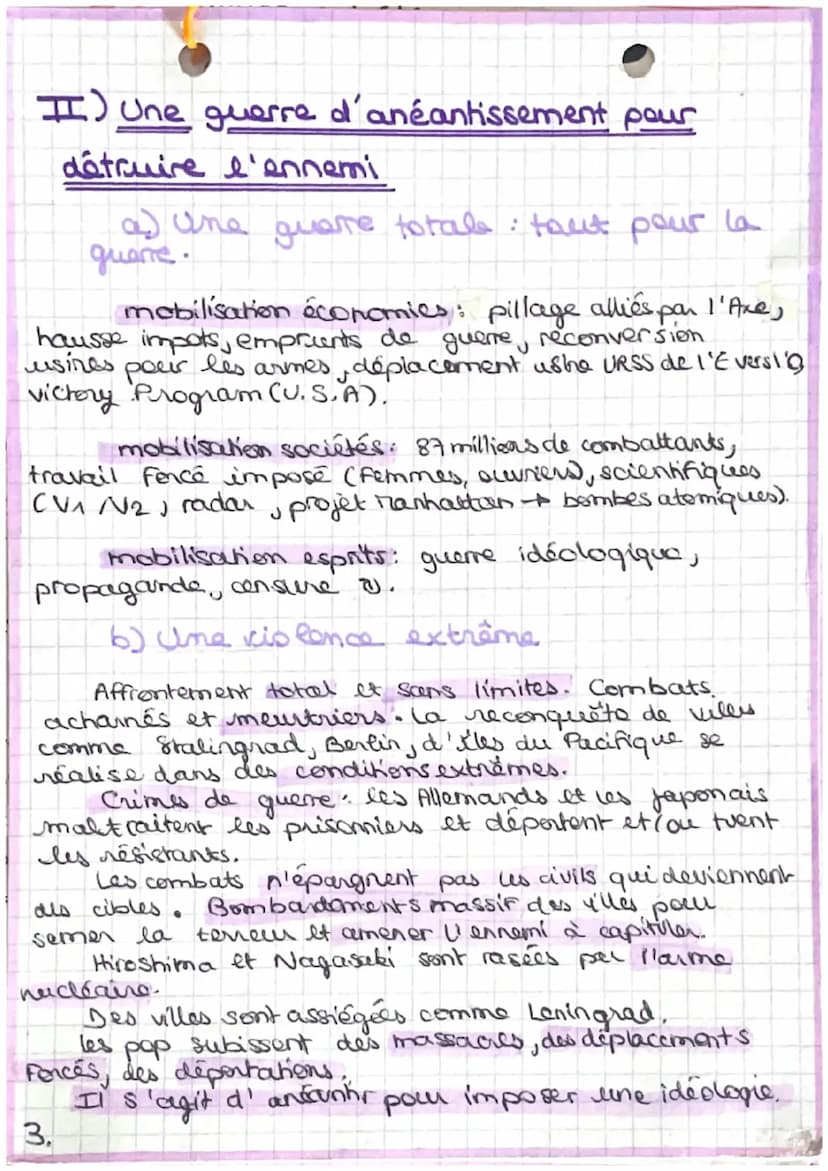 II) Une guerre d'anéantissement pour
détruire l'ennemi
a) Une guerre totale : tout pour la
guerre.
mobilisation économies : pillage alliés par l'Axe,
hausse impots, emprunts de guerre, reconversion
usines pour les armes, déplacement usine URSS de l'E vers l'O
victory Program (U.S.A).
mobilisation sociétés : 87 millions de combattants,
travail forcé imposé (femmes, ouvriers), scientifiques
(V1/V2, radar, projet Manhattan → bombes atomiques).
mobilisation esprits : guerre idéologique,
propagande, censure
b) Une violence extrême
Affrontement total et sans limites. Combats
acharnés et meurtriers. La reconquête de villes
comme Stalingrad, Berlin, d'îles du Pacifique se
réalise dans des conditions extrêmes.
Crimes de guerre : les Allemands et les japonais
maltraitent les prisonniers et déportent et/ou tuent
les résistants.
Les combats n'épargnent pas les civils qui deviennent
des cibles. Bombardements massif des villes pour
semer la terreur et amener l'ennemi à capituler.
Hiroshima et Nagasaki sont rasées par l'arme
nucléaire.
Des villes sont assiégées comme Leningrad.
les pop subissent des massacres, des déplacements
forcés, des déportations.
Il s'agit d'anéantir pour imposer une idéologie.
3.